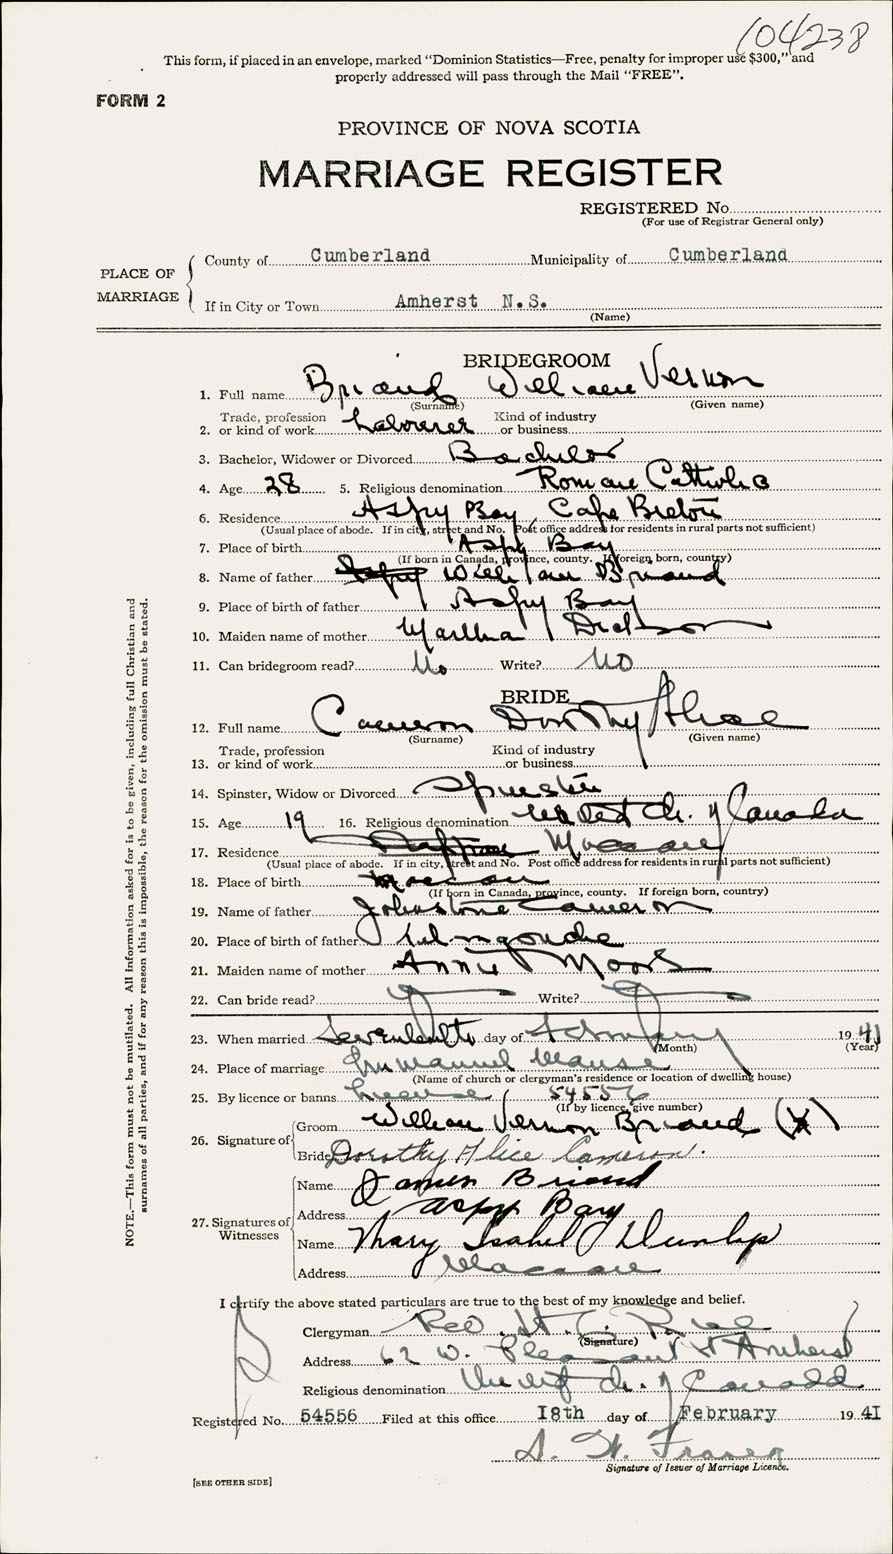 104238
This form, if placed in an envelope, marked "Dominion Statistics—Free, penalty for improper use $300," and
properly addressed will pass through the Mail "FREE".
FORM 2
PROVINCE OF NOVA SCOTIA
MARRIAGE REGISTER
REGISTERED No.
(For use of Registrar General only)
PLACE OF MARRIAGE
County of Cumberland Municipality of Cumberland
If in City or Town Amherst N.S.
(Name)
BRIDEGROOM
1. Full name Briand William Vernon
(Surname) (Given name)
2. Trade, profession or kind of work Labourer Kind of industry or business
3. Bachelor, Widower or Divorced Bachelor
4. Age 28 5. Religious denomination Roman Catholic
6. Residence Aspy Bay Cape Breton
(Usual place of abode. If in city, street and No. Post office address for residents in rural parts not sufficient)
7. Place of birth Aspy Bay
(If born in Canada, province, county. If foreign born, country)
8. Name of father William Briand
9. Place of birth of father Aspy Bay
10. Maiden name of mother Martha Dickson
11. Can bridegroom read? No Write? No
BRIDE
12. Full name Cameron Dorothy Alice
(Surname) (Given name)
13. Trade, profession or kind of work Kind of industry or business
14. Spinster, Widow or Divorced Spinster
15. Age 19 16. Religious denomination United Ch. of Canada
17. Residence Maccan
(Usual place of abode. If in city, street and No. Post office address for residents in rural parts not sufficient)
18. Place of birth Maccan
(If born in Canada, province, county. If foreign born, country)
19. Name of father Johnstone Cameron
20. Place of birth of father
21. Maiden name of mother Annie Moore
22. Can bride read? Write?
23. When married Seventeenth day of February 1941
(Month) (Year)
24. Place of marriage Immanuel Manse
(Name of church or clergyman's residence or location of dwelling house)
25. By licence or banns License 54556
(If by licence, give number)
26. Signature of Groom William Vernon Briand (X)
Bride Dorothy Alice Cameron.
27. Signatures of Witnesses
Name James Briand
Address Aspy Bay
Name Mary Isabel Dunlap
Address Maccan
I certify the above stated particulars are true to the best of my knowledge and belief.
Clergyman Rev. H. C.
(Signature)
Address 62 W. Pleasant St Amherst
Religious denomination United Ch. of Canada
Registered No. 54556 Filed at this office 18th day of February 1941
S. H. Fraser
Signature of Issuer of Marriage Licence.
[SEE OTHER SIDE]
NOTE.—This form must not be mutilated. All information asked for is to be given, including full Christian and
surnames of all parties, and if for any reason this is impossible, the reason for the omission must be stated.